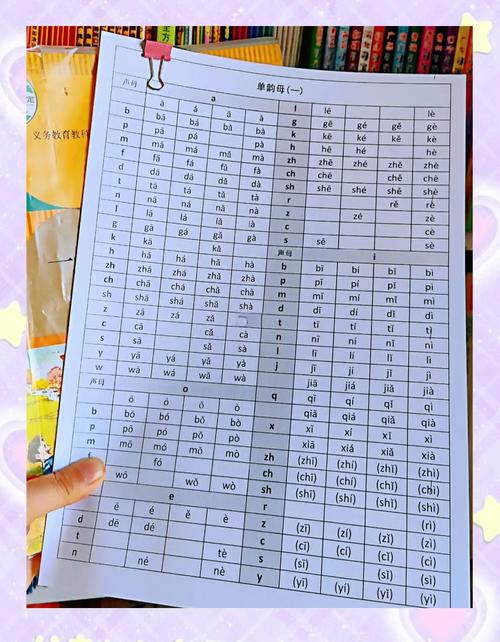 单韵母(一)
声母 a
ā á ǎ à
b bā bá bǎ bà
p pā pá pà
m mā má mǎ mà
f fā fá fǎ fà
d dā dá dǎ dà
t tā
n ná nǎ nà
l lā lá lǎ là
g gā gá gǎ gà
k kā kǎ
h hā há hǎ hà
zh zhā zhá zhǎ zhà
ch chā chá chǎ chà
sh shā shá shǎ shà
z zā zá zǎ
c cā cǎ cà
s sā sǎ sà
y yā yá yǎ yà
w wā wá wǎ wà
声母 o
ō ó ǒ ò
b bō bó bǒ bò
p pō pó pǒ pò
m mō mó mǒ mò
fó
wō wǒ wò
e
ē é ě è
d dē dé
t tè
n né nè
l lē lè
g gē gé gě gè
k kē ké kě kè
h hē hé hè
zh zhē zhé zhě zhè
ch chē chě chè
sh shē shé shě shè
r rě rè
z zé zè
c cè
s sē sè
声母 i
b bī bí bǐ bì
p pī pí pǐ pì
m mī mí mǐ mì
d dī dí dǐ dì
t tī tí tǐ tì
n nī ní nǐ nì
l lī lí lǐ lì
j jī jí jǐ jì
jiā jiá jiǎ jià
q qī qí qǐ qì
qiā qiá qiǎ qià
x xī xí xǐ xì
xiā xiá xiǎ xià
zh (zhī) (zhí) (zhǐ) (zhì)
ch (chī) (chí) (chǐ) (chì)
sh (shī) (shí) (shǐ) (shì)
r (rì)
z (zī) (zí) (zǐ) (zì)
c (cī) (cí) (cǐ) (cì)
s (sī) (sǐ) (sì)
y (yī) (yí) (yǐ) (yì)
义务教育教科